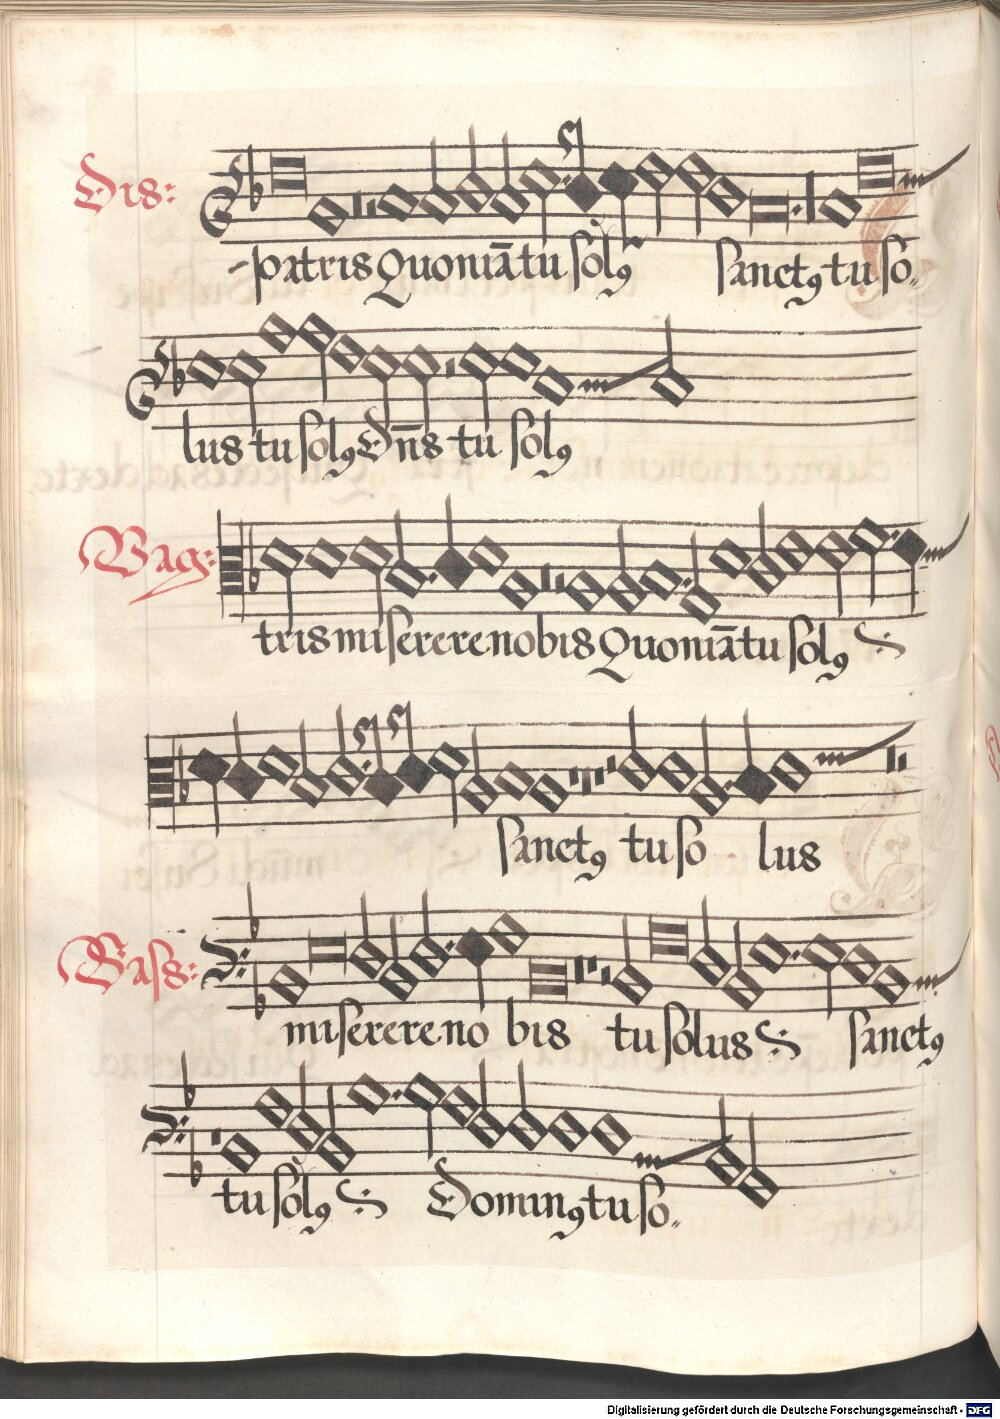 Dis:
patris Quoniā tu solꝰ sanctꝰ tu so„
lus tu solꝰ Dn̄s tu solꝰ
Vag:
tris miserere nobis Quoniā tu solꝰ
sanctꝰ tu so lus
Bass:
miserere no bis tu solus sanctꝰ
tu solꝰ Dominꝰ tu so„
Digitalisierung gefördert durch die Deutsche Forschungsgemeinschaft - DFG